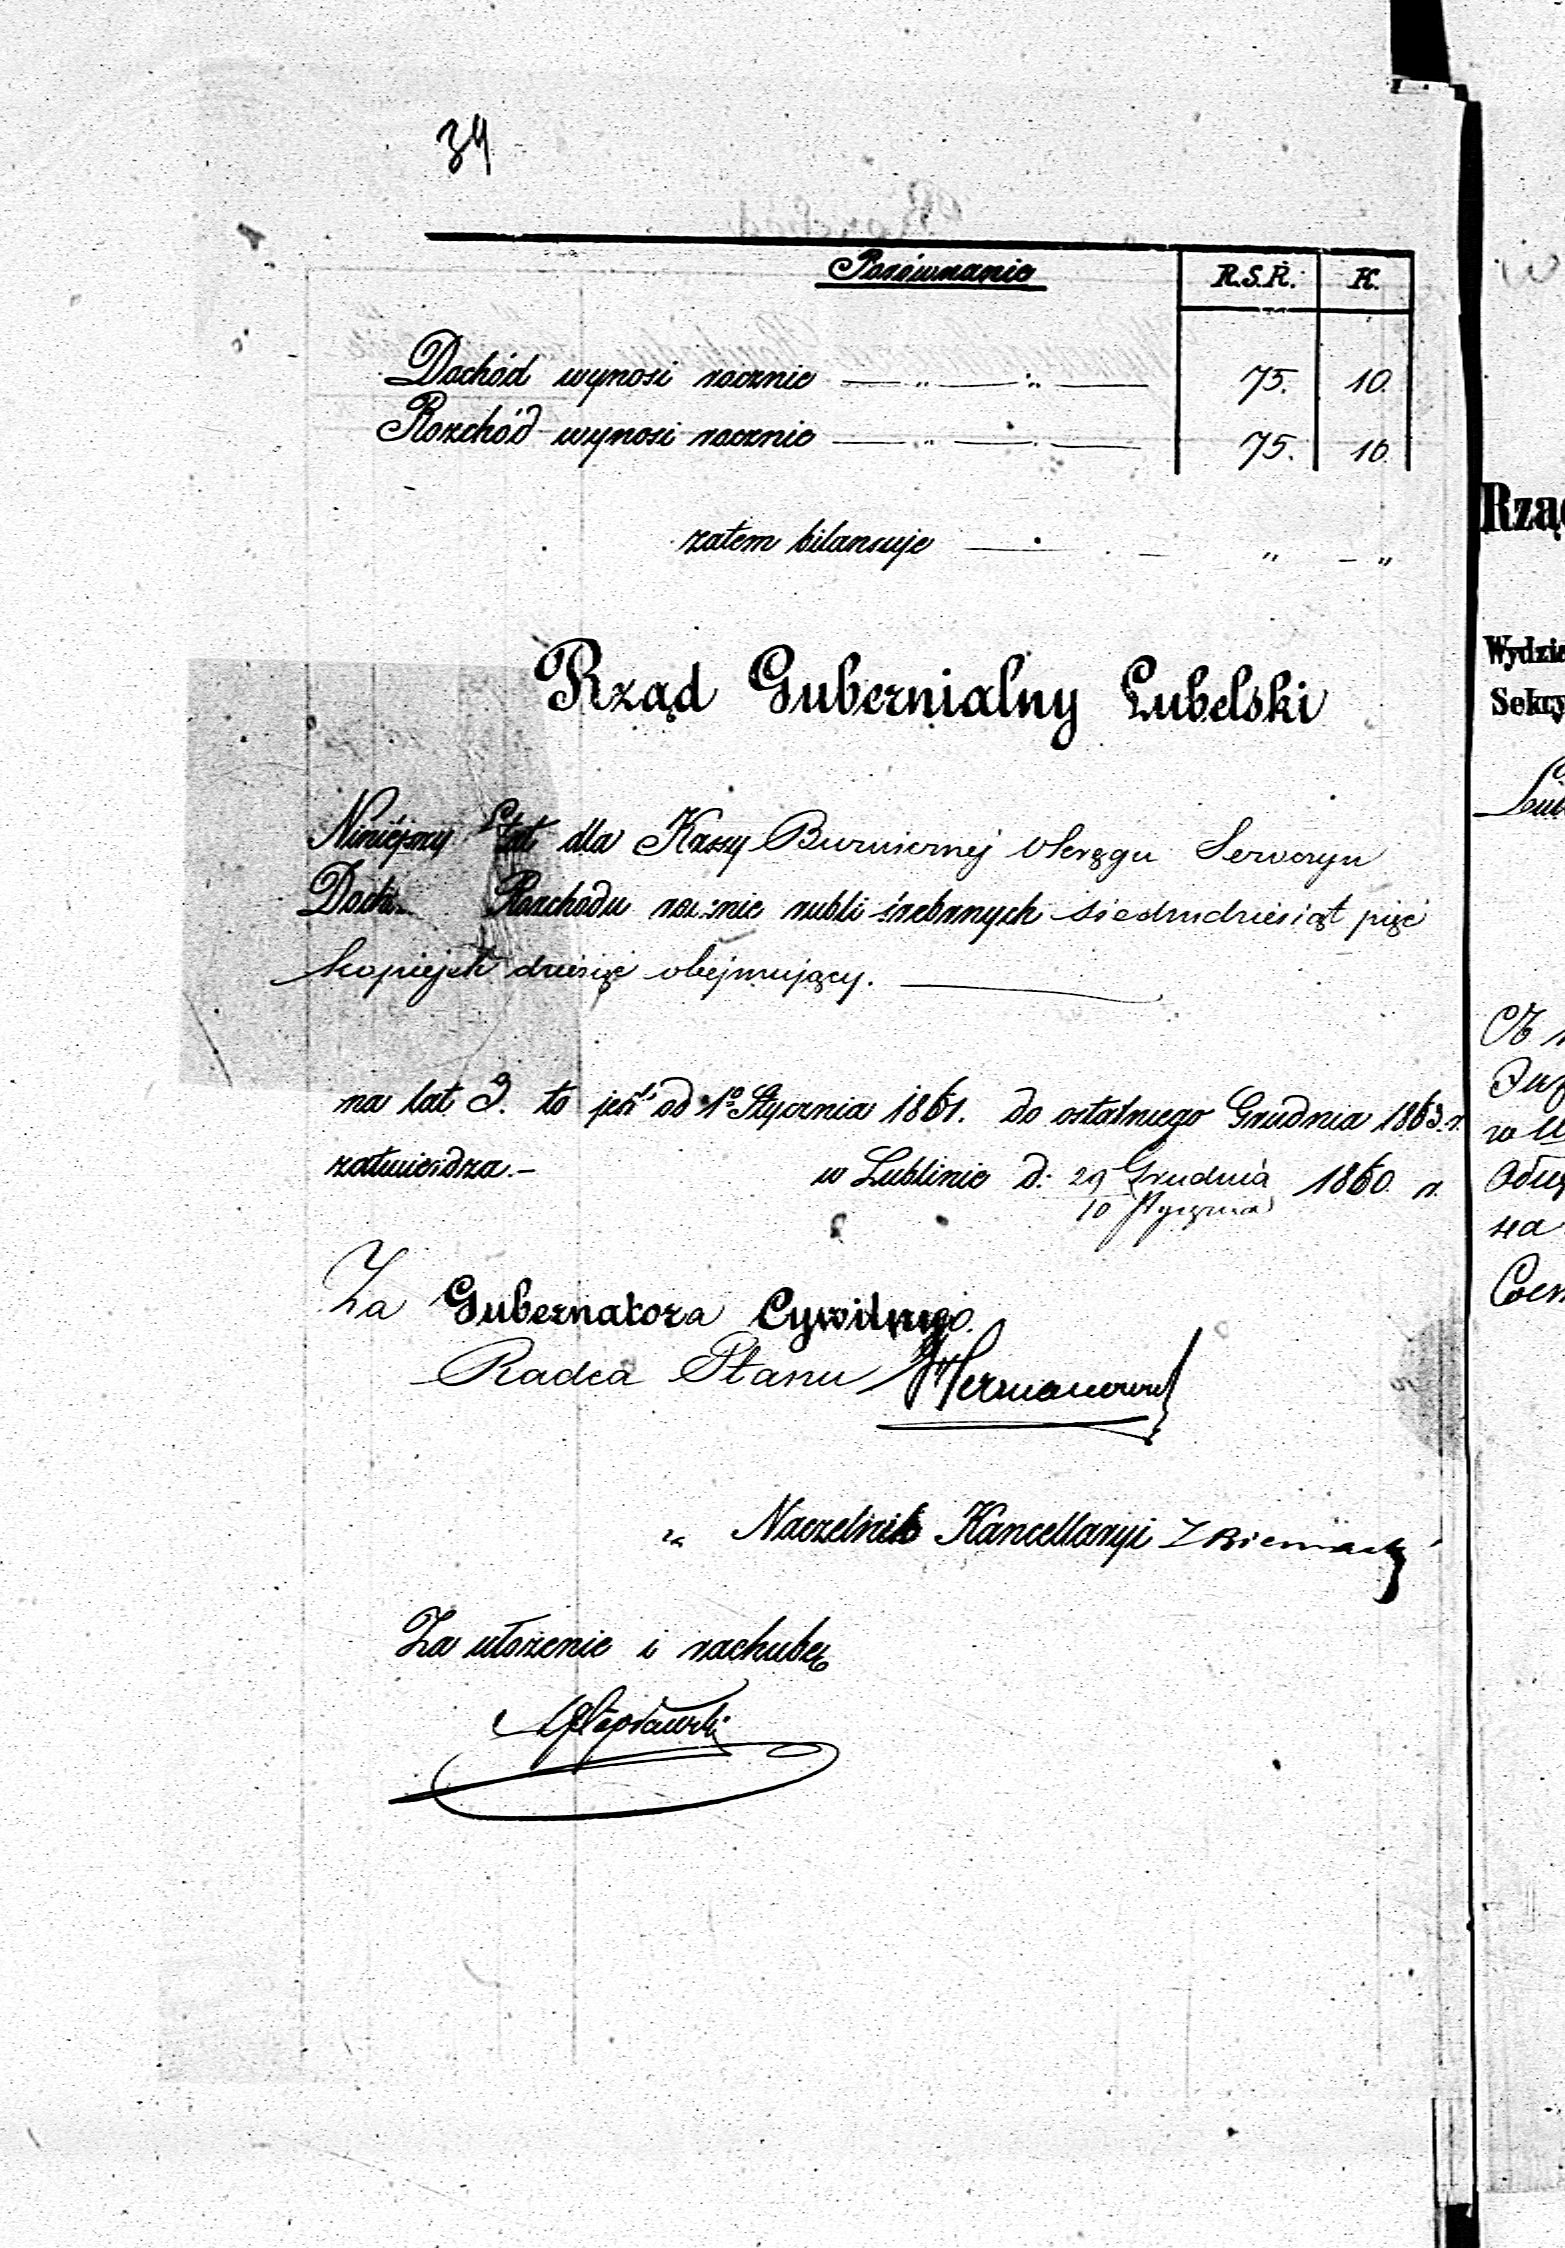 34
Porównanie
R.S.R. K.
Dochód wynosi rocznie — „ — „ — 75. 10.
Rozchód wynosi rocznie — „ — . — 75. 10.
zatem bilansuje — . — „ — „
Rząd Gubernialny Lubelski
Niniéjszy Etat dla Kassy Bożniczej Okręgu
Doch. Rozchodu rocznie rubli śrebrnych siedmdziesiąt pięć
kopiejek dziesięć obejmujący.
na lat 3. to jest od 1º Stycznia 1861. do ostatniego Grudnia 1863. r.
zatwierdza.—
w Lublinie d: 29 Grudnia 1860. r.
10 Stycznia
Za Gubernatora Cywilnego.
Radca Stanu
Naczelnik Kancellaryi
Za ułożenie i rachubę
Rzą
Wydzia
Sekcy
Lub